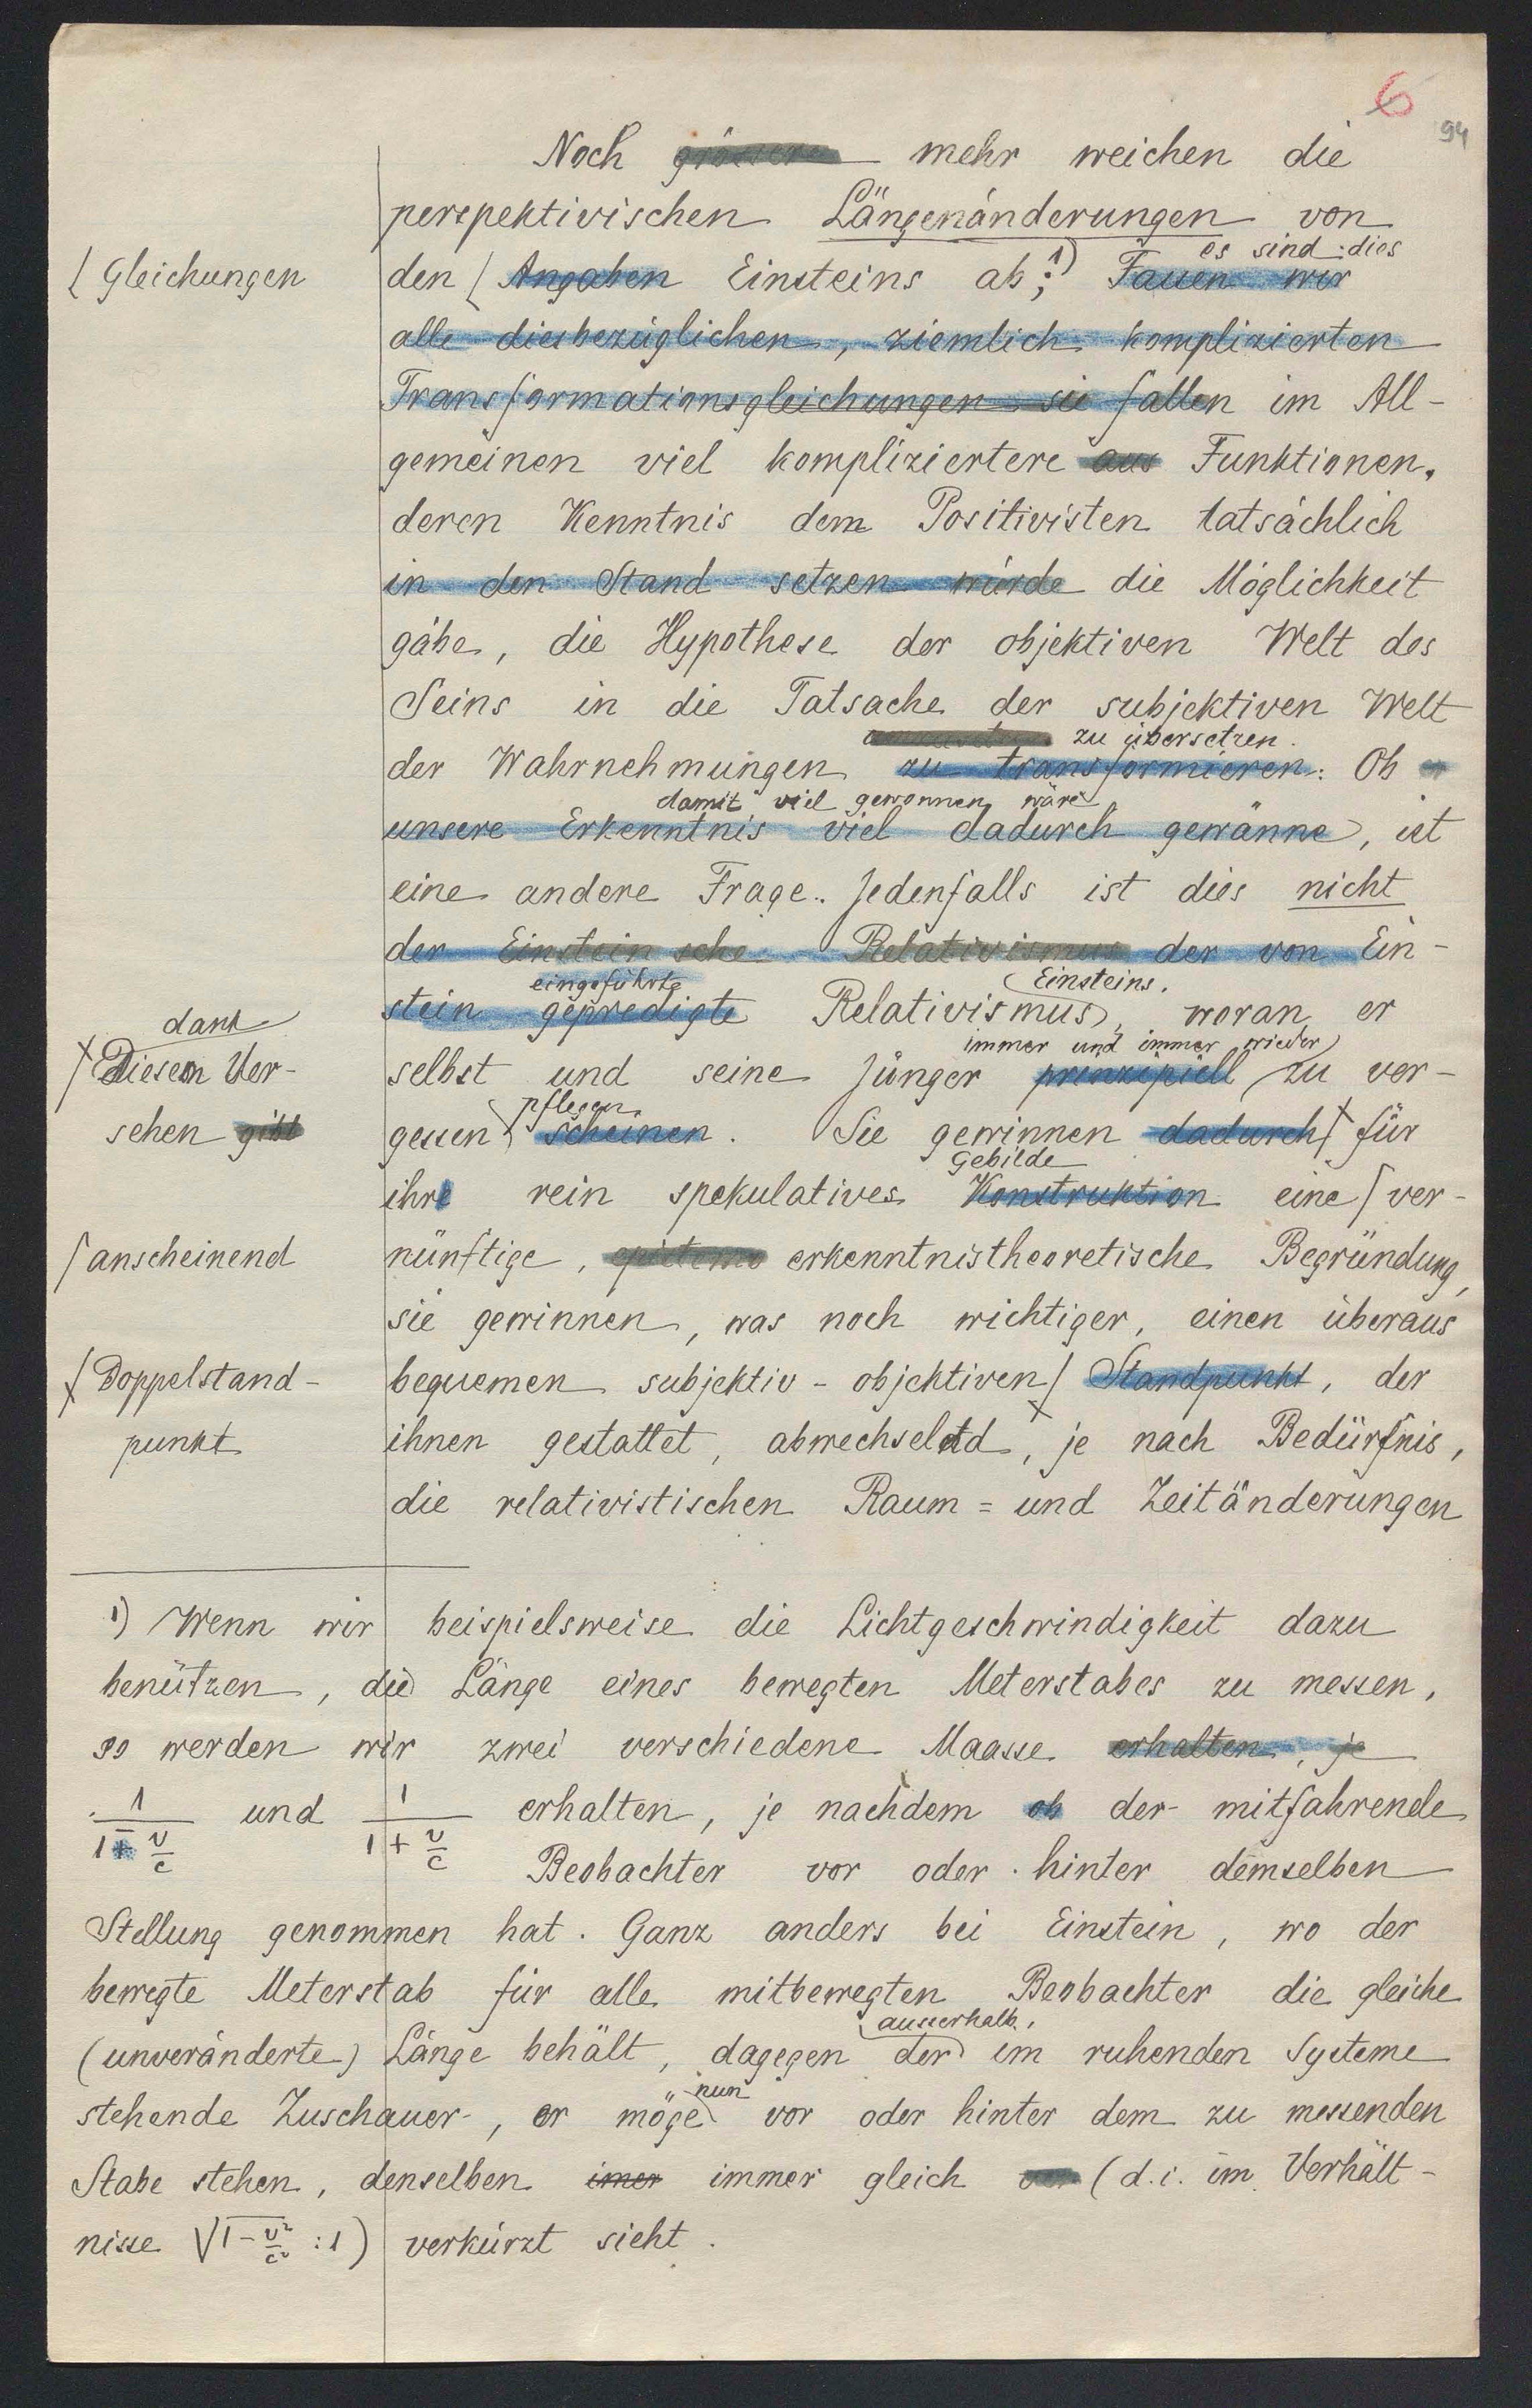 6
94
Noch grössere mehr weichen die
perspektivischen Längenänderungen von
es sind dies
⌊ Gleichungen
den ⌊ Angaben Einsteins ab; ¹) Fauen wir
alle diesbezüglichen, ziemlich komplizierten
Transformationsgleichungen sie fallen im All-
gemeinen viel kompliziertere aus Funktionen,
deren Kenntnis dem Positivisten tatsächlich
in den Stand setzen würde die Möglichkeit
gäbe, die Hypothese der objektiven Welt des
Seins in die Tatsache der subjektiven Welt
zu übersetzen.
der Wahrnehmungen zu transformieren. Ob
damit viel gewonnen wäre
unsere Erkenntnis viel dadurch gewänne, ist
eine andere Frage. Jedenfalls ist dies nicht
der Einstein'sche Relativismus der von Ein-
eingeführte Einsteins,
stein gepredigte Relativismus, woran er
dank
immer und immer wieder
Diesem Ver-
selbst und seine Jünger prinzipiell zu ver-
pflegen
sehen gibt
gessen scheinen. Sie gewinnen dadurch für
Gebilde
ihre rein spekulatives Konstruktion eine ⌈ ver-
⌈ anscheinend
nünftige, erkenntnistheoretische Begründung,
sie gewinnen, was noch wichtiger, einen überaus
Doppelstand-
bequemen subjektiv-objektiven Standpunkt, der
punkt
ihnen gestattet, abwechselnd, je nach Bedürfnis,
die relativistischen Raum= und Zeitänderungen
¹) Wenn wir beispielsweise die Lichtgeschwindigkeit dazu
benützen, die Länge eines bewegten Meterstabes zu messen,
so werden wir zwei verschiedene Maasse erhalten, je
1/(1-v/c) und 1/(1+v/c) erhalten, je nachdem ob der mitfahrende
Beobachter vor oder hinter demselben
Stellung genommen hat. Ganz anders bei Einstein, wo der
bewegte Meterstab für alle mitbewegten Beobachter die gleiche
ausserhalb,
(unveränderte) Länge behält, dagegen der im ruhenden Systeme
nun
stehende Zuschauer, er möge vor oder hinter dem zu messenden
Stabe stehen, denselben imer immer gleich (d.i. im Verhält-
nisse √1-v²/c² : 1) verkürzt sieht.